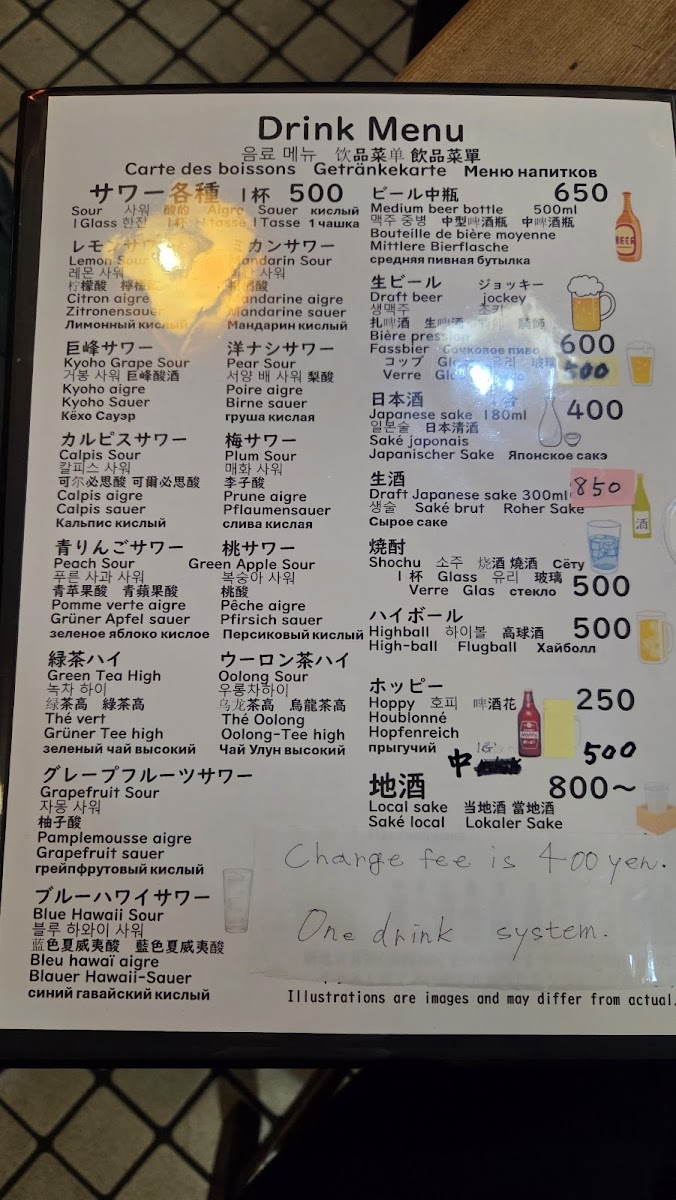 Drink Menu
음료 메뉴 饮品菜单 飲品菜單
Carte des boissons Getränkekarte Меню напитков
サワー各種 1杯 500
Sour 사워 酸的 Aigre Sauer кислый
1 Glass 한잔 1杯 1 tasse 1 Tasse 1 чашка
レモンサワー
Lemon Sour
레몬 사워
柠檬酸
Citron aigre
Zitronensauer
Лимонный кислый
ミカンサワー
Mandarin Sour
사워
Mandarine aigre
Mandarine sauer
Мандарин кислый
巨峰サワー
Kyoho Grape Sour
거봉 사워 巨峰酸酒
Kyoho aigre
Kyoho Sauer
Кёхо Сауэр
洋ナシサワー
Pear Sour
서양 배 사워 梨酸
Poire aigre
Birne sauer
груша кислая
カルピスサワー
Calpis Sour
칼피스 사워
可尔必思酸 可爾必思酸
Calpis aigre
Calpis sauer
Кальпис кислый
梅サワー
Plum Sour
매화 사워
李子酸
Prune aigre
Pflaumensauer
слива кислая
青りんごサワー
Peach Sour
푸른 사과 사워
青苹果酸 青蘋果酸
Pomme verte aigre
Grüner Apfel sauer
зеленое яблоко кислое
桃サワー
Green Apple Sour
복숭아 사워
桃酸
Pêche aigre
Pfirsich sauer
Персиковый кислый
緑茶ハイ
Green Tea High
녹차 하이
绿茶高 綠茶高
Thé vert
Grüner Tee high
зеленый чай высокий
ウーロン茶ハイ
Oolong Sour
우롱차하이
乌龙茶高 烏龍茶高
Thé Oolong
Oolong-Tee high
Чай Улун высокий
グレープフルーツサワー
Grapefruit Sour
자몽 사워
柚子酸
Pamplemousse aigre
Grapefruit sauer
грейпфрутовый кислый
ブルーハワイサワー
Blue Hawaii Sour
블루 하와이 사워
蓝色夏威夷酸 藍色夏威夷酸
Bleu hawaï aigre
Blauer Hawaii-Sauer
синий гавайский кислый
ビール中瓶 650
Medium beer bottle 500ml
맥주 중병 中型啤酒瓶 中啤酒瓶
Bouteille de bière moyenne
Mittlere Bierflasche
средняя пивная бутылка
BEER
生ビール ジョッキー
Draft beer jockey
생맥주 조키
扎啤酒 生啤酒 騎師
Bière pression
Fassbier Бочковое пиво 600
コップ Glass 유리 玻璃 500
Verre
日本酒 400
Japanese sake 180ml
일본술 日本清酒
Saké japonais
Japanischer Sake Японское сакэ
生酒 850
Draft Japanese sake 300ml
생술 Saké brut Roher Sake
Сырое саке
酒
焼酎
Shochu 소주 烧酒 燒酒 Сётy
1杯 Glass 유리 玻璃 500
Verre Glas стекло
ハイボール 500
Highball 하이볼 高球酒
High-ball Flugball Хайболл
ホッピー 250
Hoppy 호피 啤酒花
Houblonné
Hopfenreich
прыгучий
中 500
地酒 800～
Local sake 当地酒 當地酒
Saké local Lokaler Sake
Charge fee is 400 yen.
One drink system.
Illustrations are images and may differ from actual.